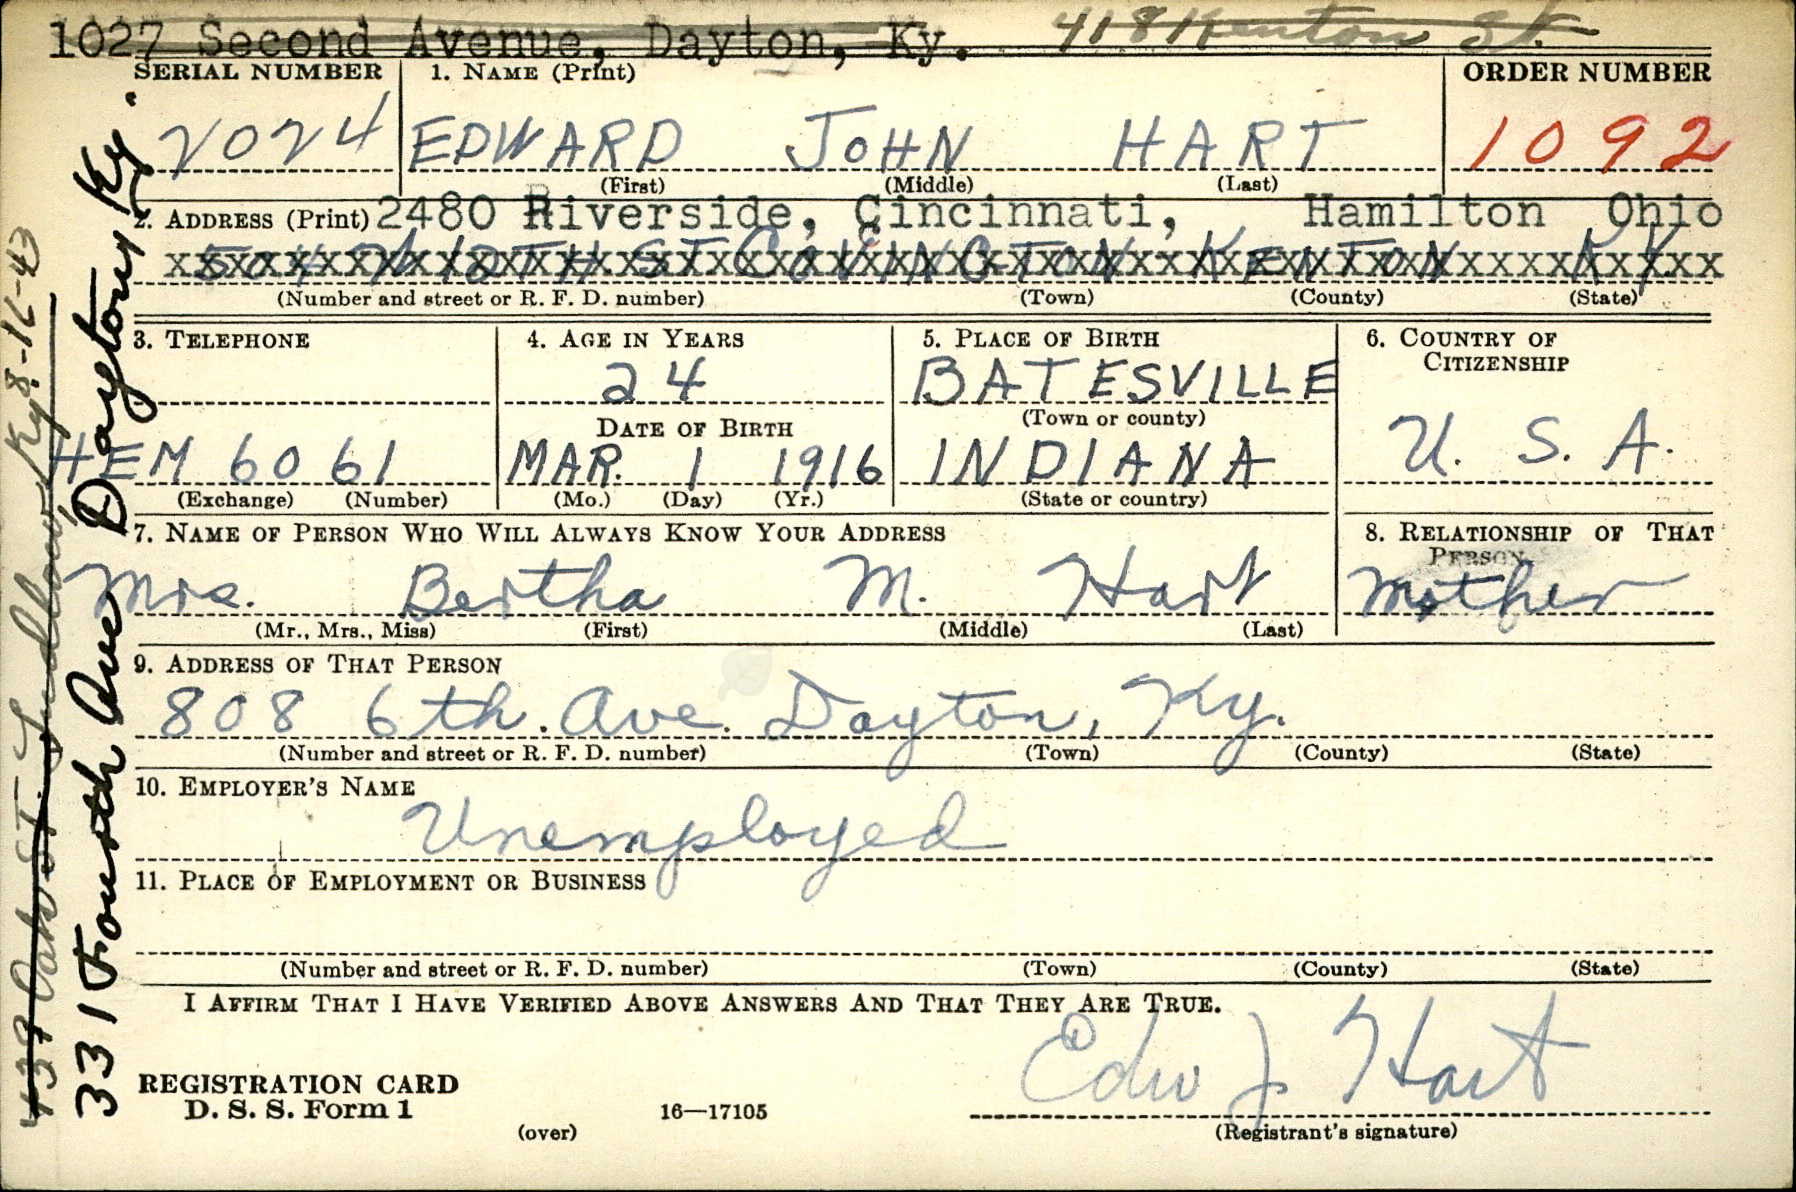 1027 Second Avenue, Dayton, Ky. 418 Kenton St.
SERIAL NUMBER 1. NAME (Print) ORDER NUMBER
2024 EDWARD JOHN HART 1092
(First) (Middle) (Last)
2. ADDRESS (Print) 2480 Riverside, Cincinnati, Hamilton Ohio
12TH ST COVINGTON KENTON KY
(Number and street or R. F. D. number) (Town) (County) (State)
3. TELEPHONE 4. AGE IN YEARS 5. PLACE OF BIRTH 6. COUNTRY OF
CITIZENSHIP
24 BATESVILLE
DATE OF BIRTH (Town or county)
HEM 6061 MAR. 1 1916 INDIANA U. S. A.
(Exchange) (Number) (Mo.) (Day) (Yr.) (State or country)
7. NAME OF PERSON WHO WILL ALWAYS KNOW YOUR ADDRESS 8. RELATIONSHIP OF THAT
PERSON
Mrs. Bertha M. Hart Mother
(Mr., Mrs., Miss) (First) (Middle) (Last)
9. ADDRESS OF THAT PERSON
808 6th. Ave. Dayton, Ky.
(Number and street or R. F. D. number) (Town) (County) (State)
10. EMPLOYER'S NAME
Unemployed
11. PLACE OF EMPLOYMENT OR BUSINESS
(Number and street or R. F. D. number) (Town) (County) (State)
I AFFIRM THAT I HAVE VERIFIED ABOVE ANSWERS AND THAT THEY ARE TRUE.
Edw J Hart
REGISTRATION CARD
D. S. S. Form 1 16—17105
(over) (Registrant's signature)
437 Oak St. Ludlow, Ky 8-16-43
331 Fourth Ave Dayton, Ky.